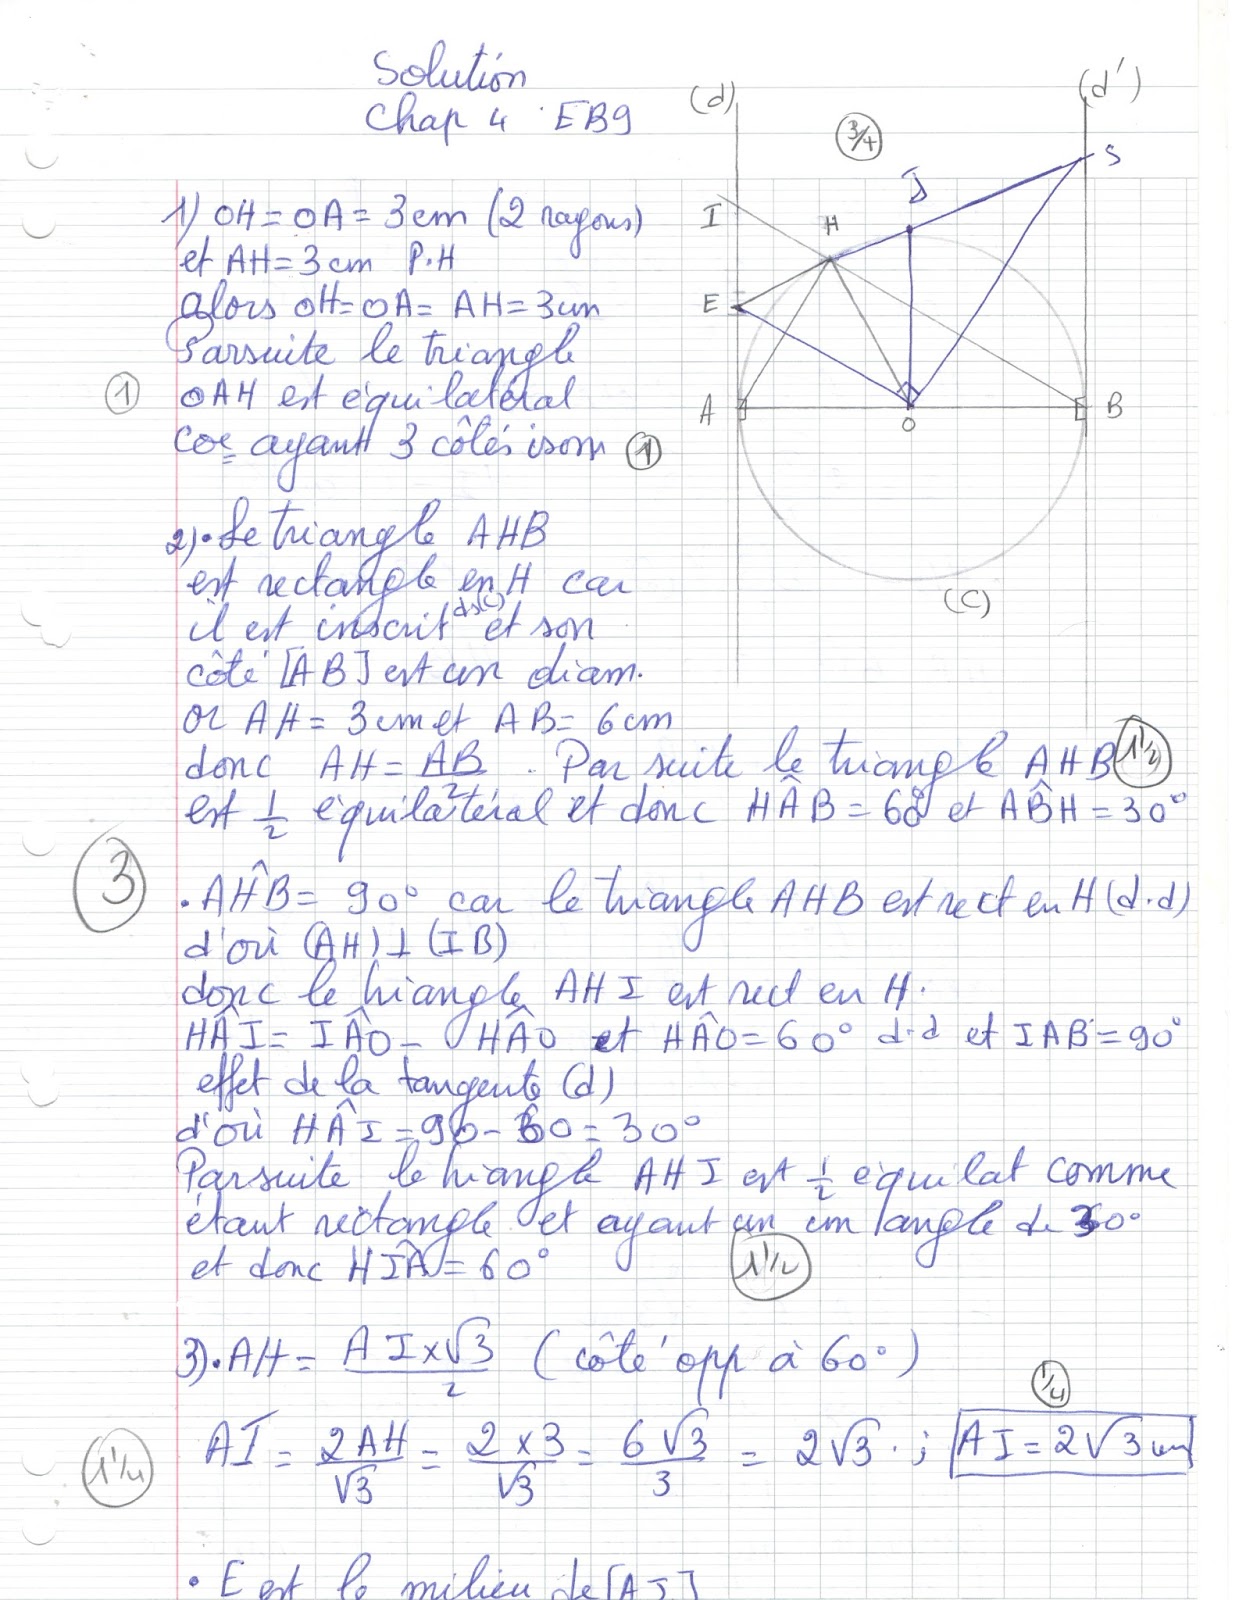 Solution
Chap 4 EB9
(d)
(d')
3/4
S
J
I
H
E
A
O
B
(C)
1) OH = OA = 3cm (2 rayons)
et AH = 3cm P.H
alors OH = OA = AH = 3cm
Parsuite le triangle
1
OAH est équilatéral
car ayant 3 côtés isom
1
2) • Le triangle AHB
est rectangle en H car
il est inscrit ds(C) et son
côté [AB] est un diam.
or AH = 3cm et AB = 6cm
donc AH = AB/2 . Par suite le triangle AHB
1 1/2
est 1/2 équilatéral et donc HÂB = 60° et AB̂H = 30°
3
• AĤB = 90° car le triangle AHB est rect en H (d.d)
d'où (AH) ⊥ (IB)
donc le triangle AHI est rect en H.
HÂI = IÂO - HÂO et HÂO = 60° d.d et IAB = 90°
effet de la tangente (d)
d'où HÂI = 90 - 60 = 30°
Parsuite le triangle AHI est 1/2 équilat comme
étant rectangle et ayant un un angle de 30°
et donc HÎA = 60°
1 1/2
3) • AH = AI×√3/2 (côté opp à 60°)
1/4
1 1/4
AI = 2AH/√3 = 2×3/√3 = 6√3/3 = 2√3 . ; AI = 2√3 cm
• E est le milieu de [AI]